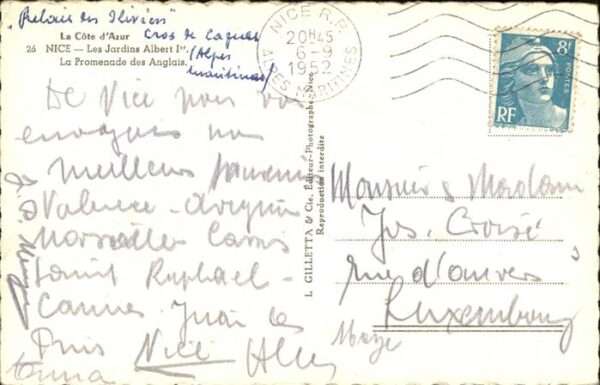 "Relais des
La Côte d'Azur Cros de Cagnes
26 NICE — Les Jardins Albert Iᵉʳ. (Alpes
La Promenade des Anglais. maritimes)
NICE R.P.
20H45
6-9
1952
ALPES MARITIMES
8F
POSTES
RF
De Nice nous vous
envoyons nos
meilleurs
Valence - Avignon
Marseille Cassis
Saint Raphael -
Cannes. Juan les
Pins Nice
L. GILLETTA & Cie, Éditeur-Photographe, Nice
Reproduction interdite
Monsieur & Madame
Jos. Croisé
rue d'anvers
Luxembourg